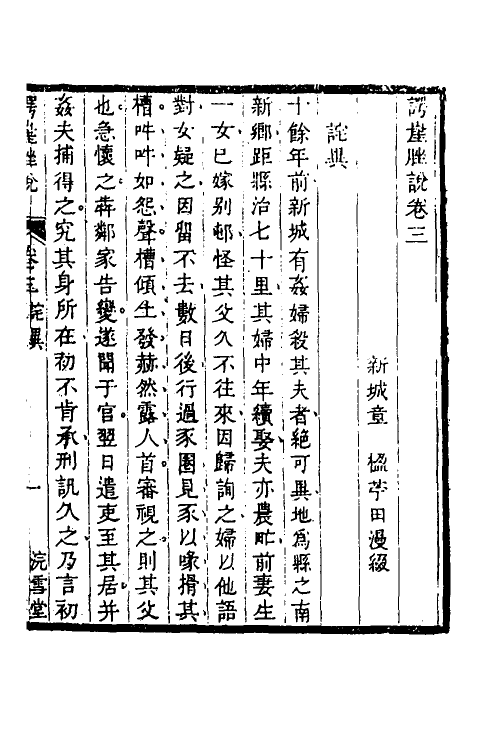 諤崖脞說卷三
新城章 楹苧田漫綴
詫異
十餘年前新城有姦婦殺其夫者絶可異地爲縣之南
新鄉距縣治七十里其婦中年續娶夫亦農甿前妻生
一女已嫁别邨怪其父久不往來因歸詢之婦以他語
對女疑之因留不去數日後行過豕圈見豕以喙揹其
槽吽吽如怨聲槽傾土發赫然露人首審視之則其父
也急懷之奔鄰家告變遂聞于官翌日遣吏至其居并
姦夫捕得之究其身所在初不肯承刑訊久之乃言初
諤崖脞說 卷三 詫異 一 浣雪堂